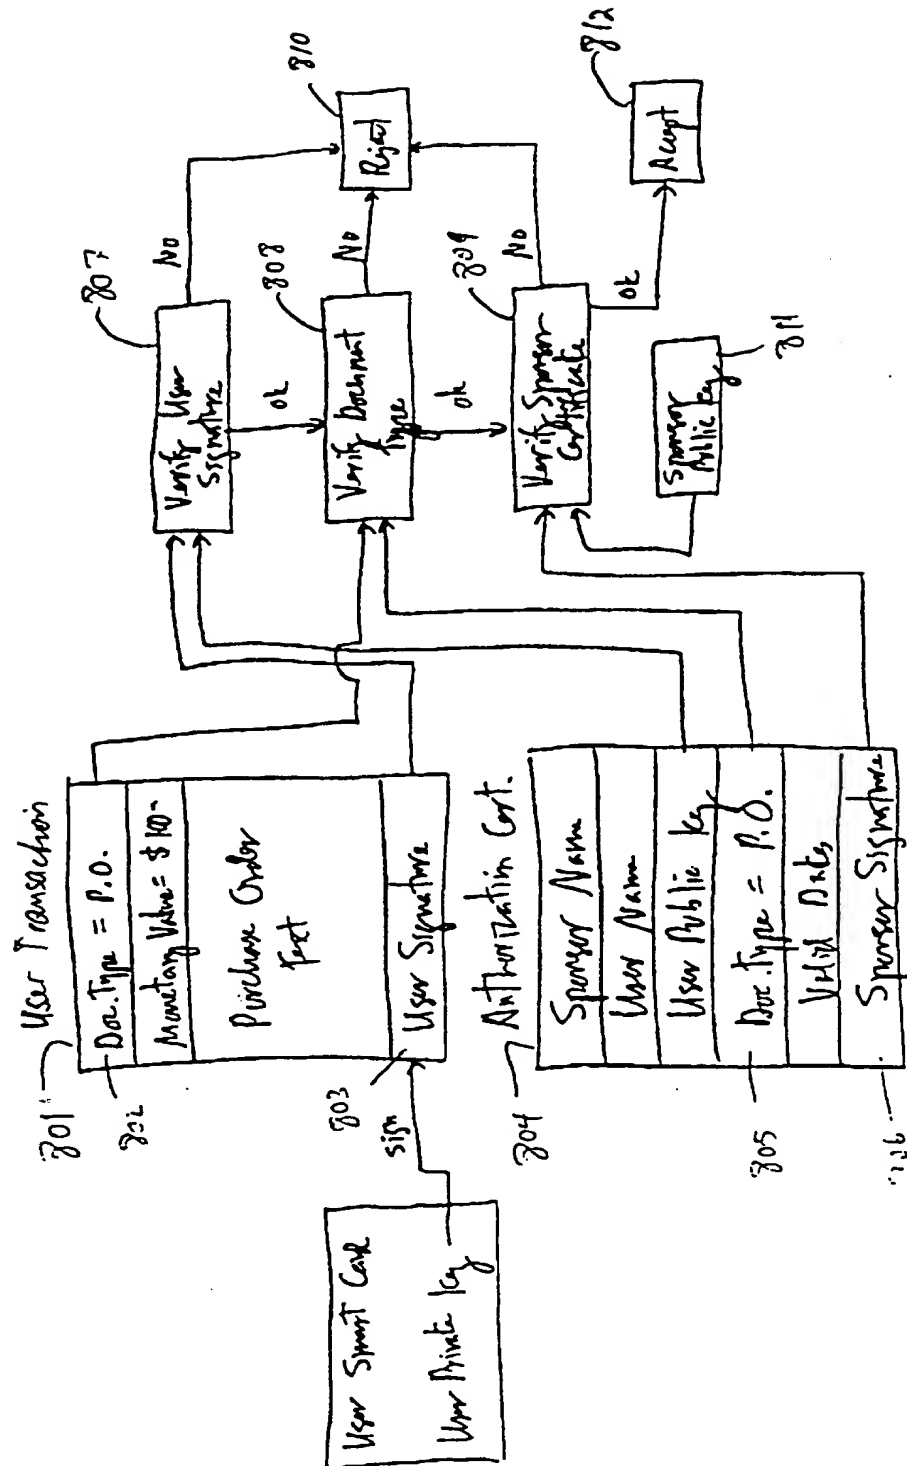 User Smart Card
User Private Key
sign
801
User Transaction
802
Doc.Type = P.O.
Monetary Value = $100-
Purchase Order
Text
803
User Signature
804
Authorization Cert.
Sponsor Name
User Name
User Public Key
805
Doc.Type = P.O.
Valid Dates
Sponsor Signature
807
Verify User
Signature
No
ok
808
Verify Document
Type
No
ok
809
Verify Sponsor
Certificate
No
ok
811
Sponsor
Public Key
810
Reject
812
Accept